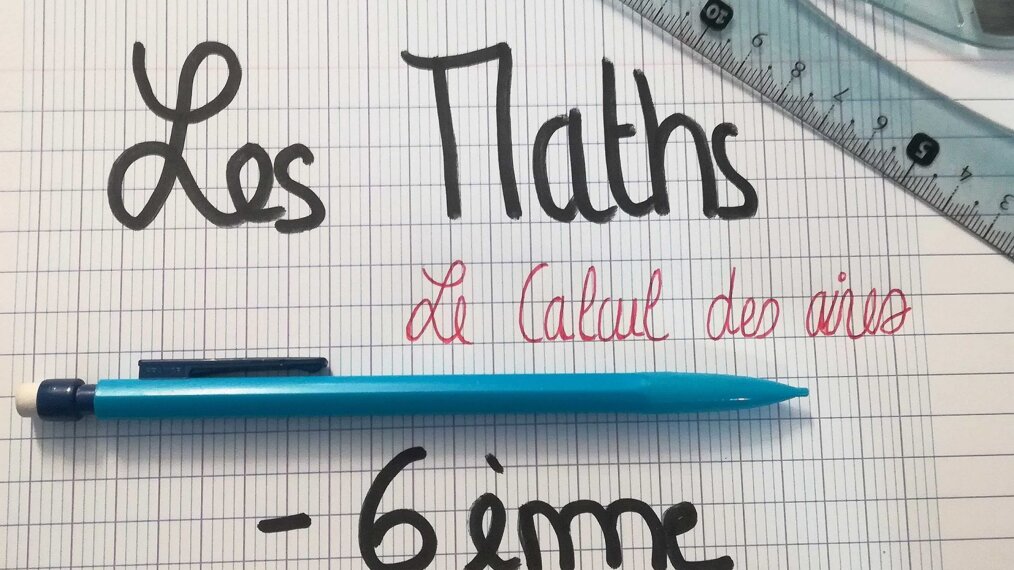 Les Maths
Le Calcul des aires
- 6ème
10 9 8 7 6 5 4 3